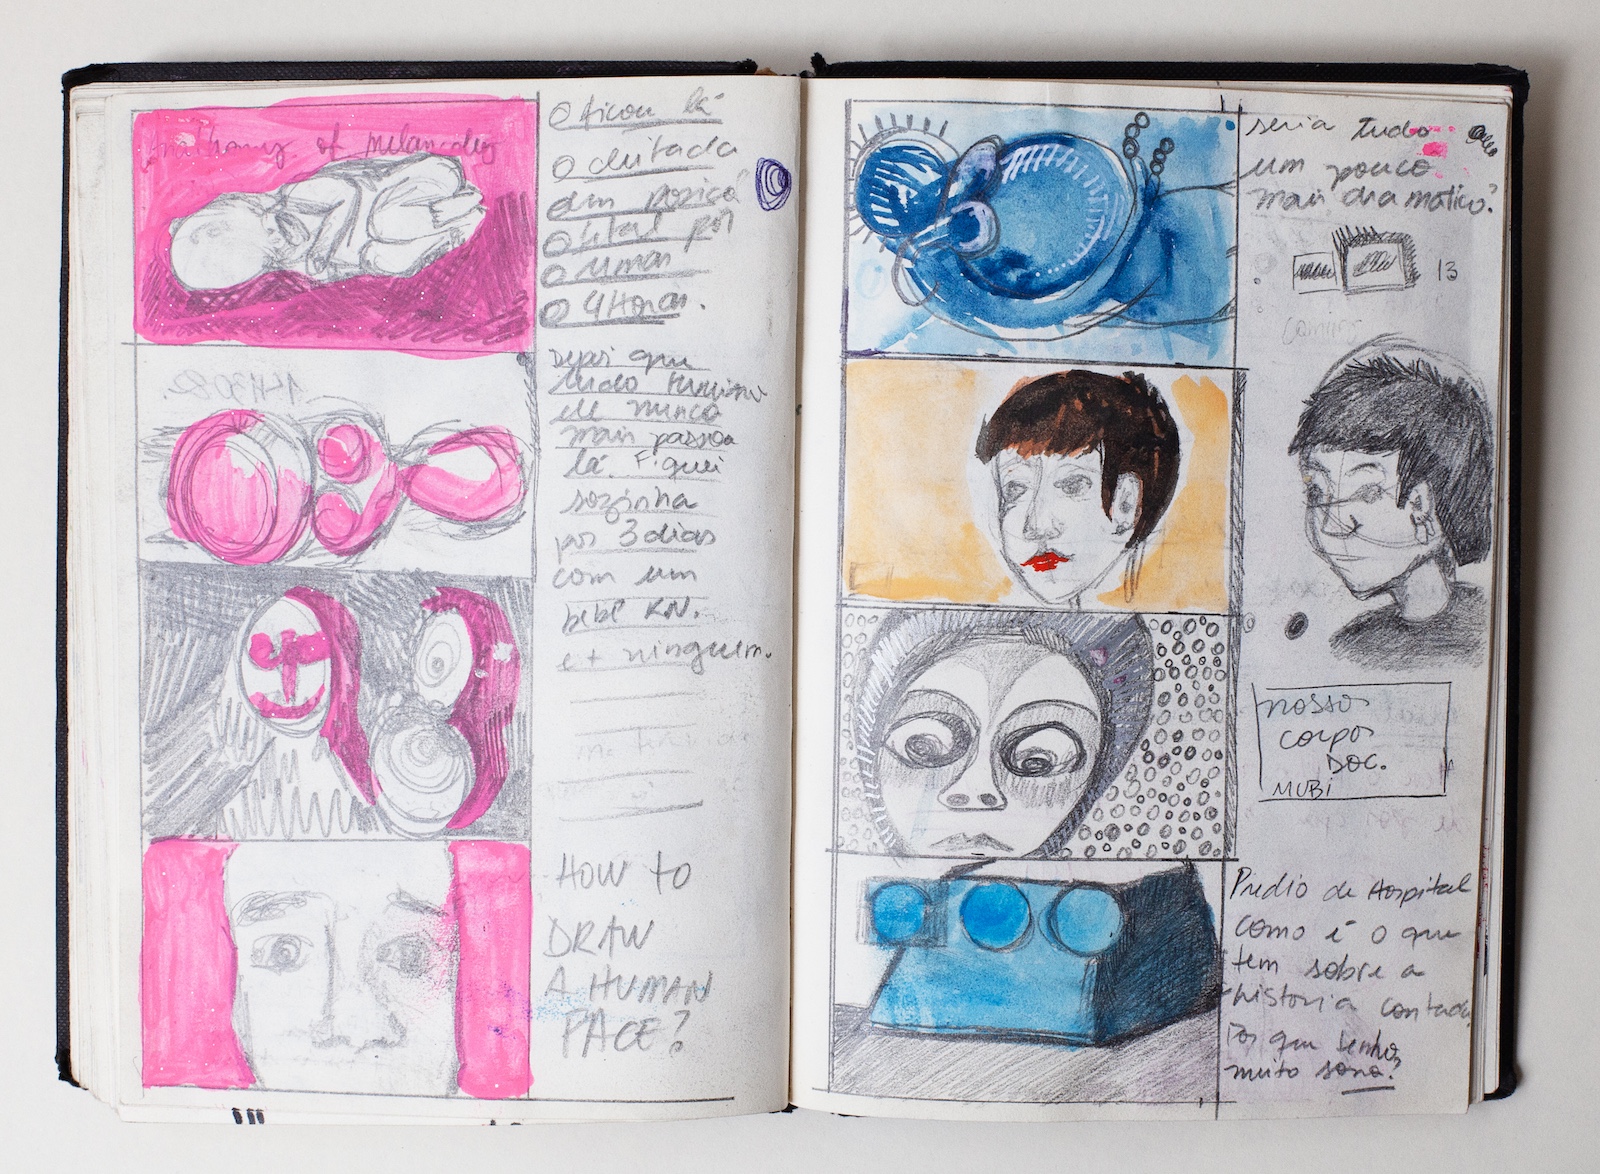 Anathomy of Melancholy
ficou lá
deitada
em posição
fetal por
umas
4 Horas.
14H30
depois que
tudo terminou
ele nunca
mais passou
lá Fiquei
sozinha
por 3 dias
com um
bebê RN.
e + ninguem.
HOW to
DRAW
A HUMAN
FACE?
seria tudo
um pouco
mais dramático?
13
nossos
corpos
DOC.
MUBI
Prédio de Hospital
como é o que
tem sobre a
história contada
Por que tenho
muito sono?